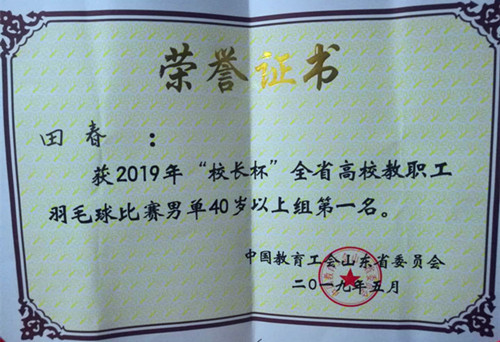 荣誉证书
田春：
获2019年“校长杯”全省高校教职工
羽毛球比赛男单40岁以上组第一名。
中国教育工会山东省委员会
二〇一九年五月